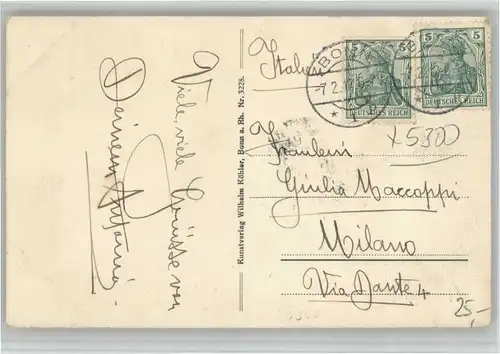 Viele, viele
Grüsse von
Deinem Antonia.
Kunstverlag Wilhelm Köhler, Bonn a. Rh. Nr. 3228.
Italien
5 5
DEUTSCHES REICH
5
DEUTSCHES REICH
BONN
-7.2.
x5300
Fräulein
Giulia Maccoppi
Milano
Via Dante 4
25,-